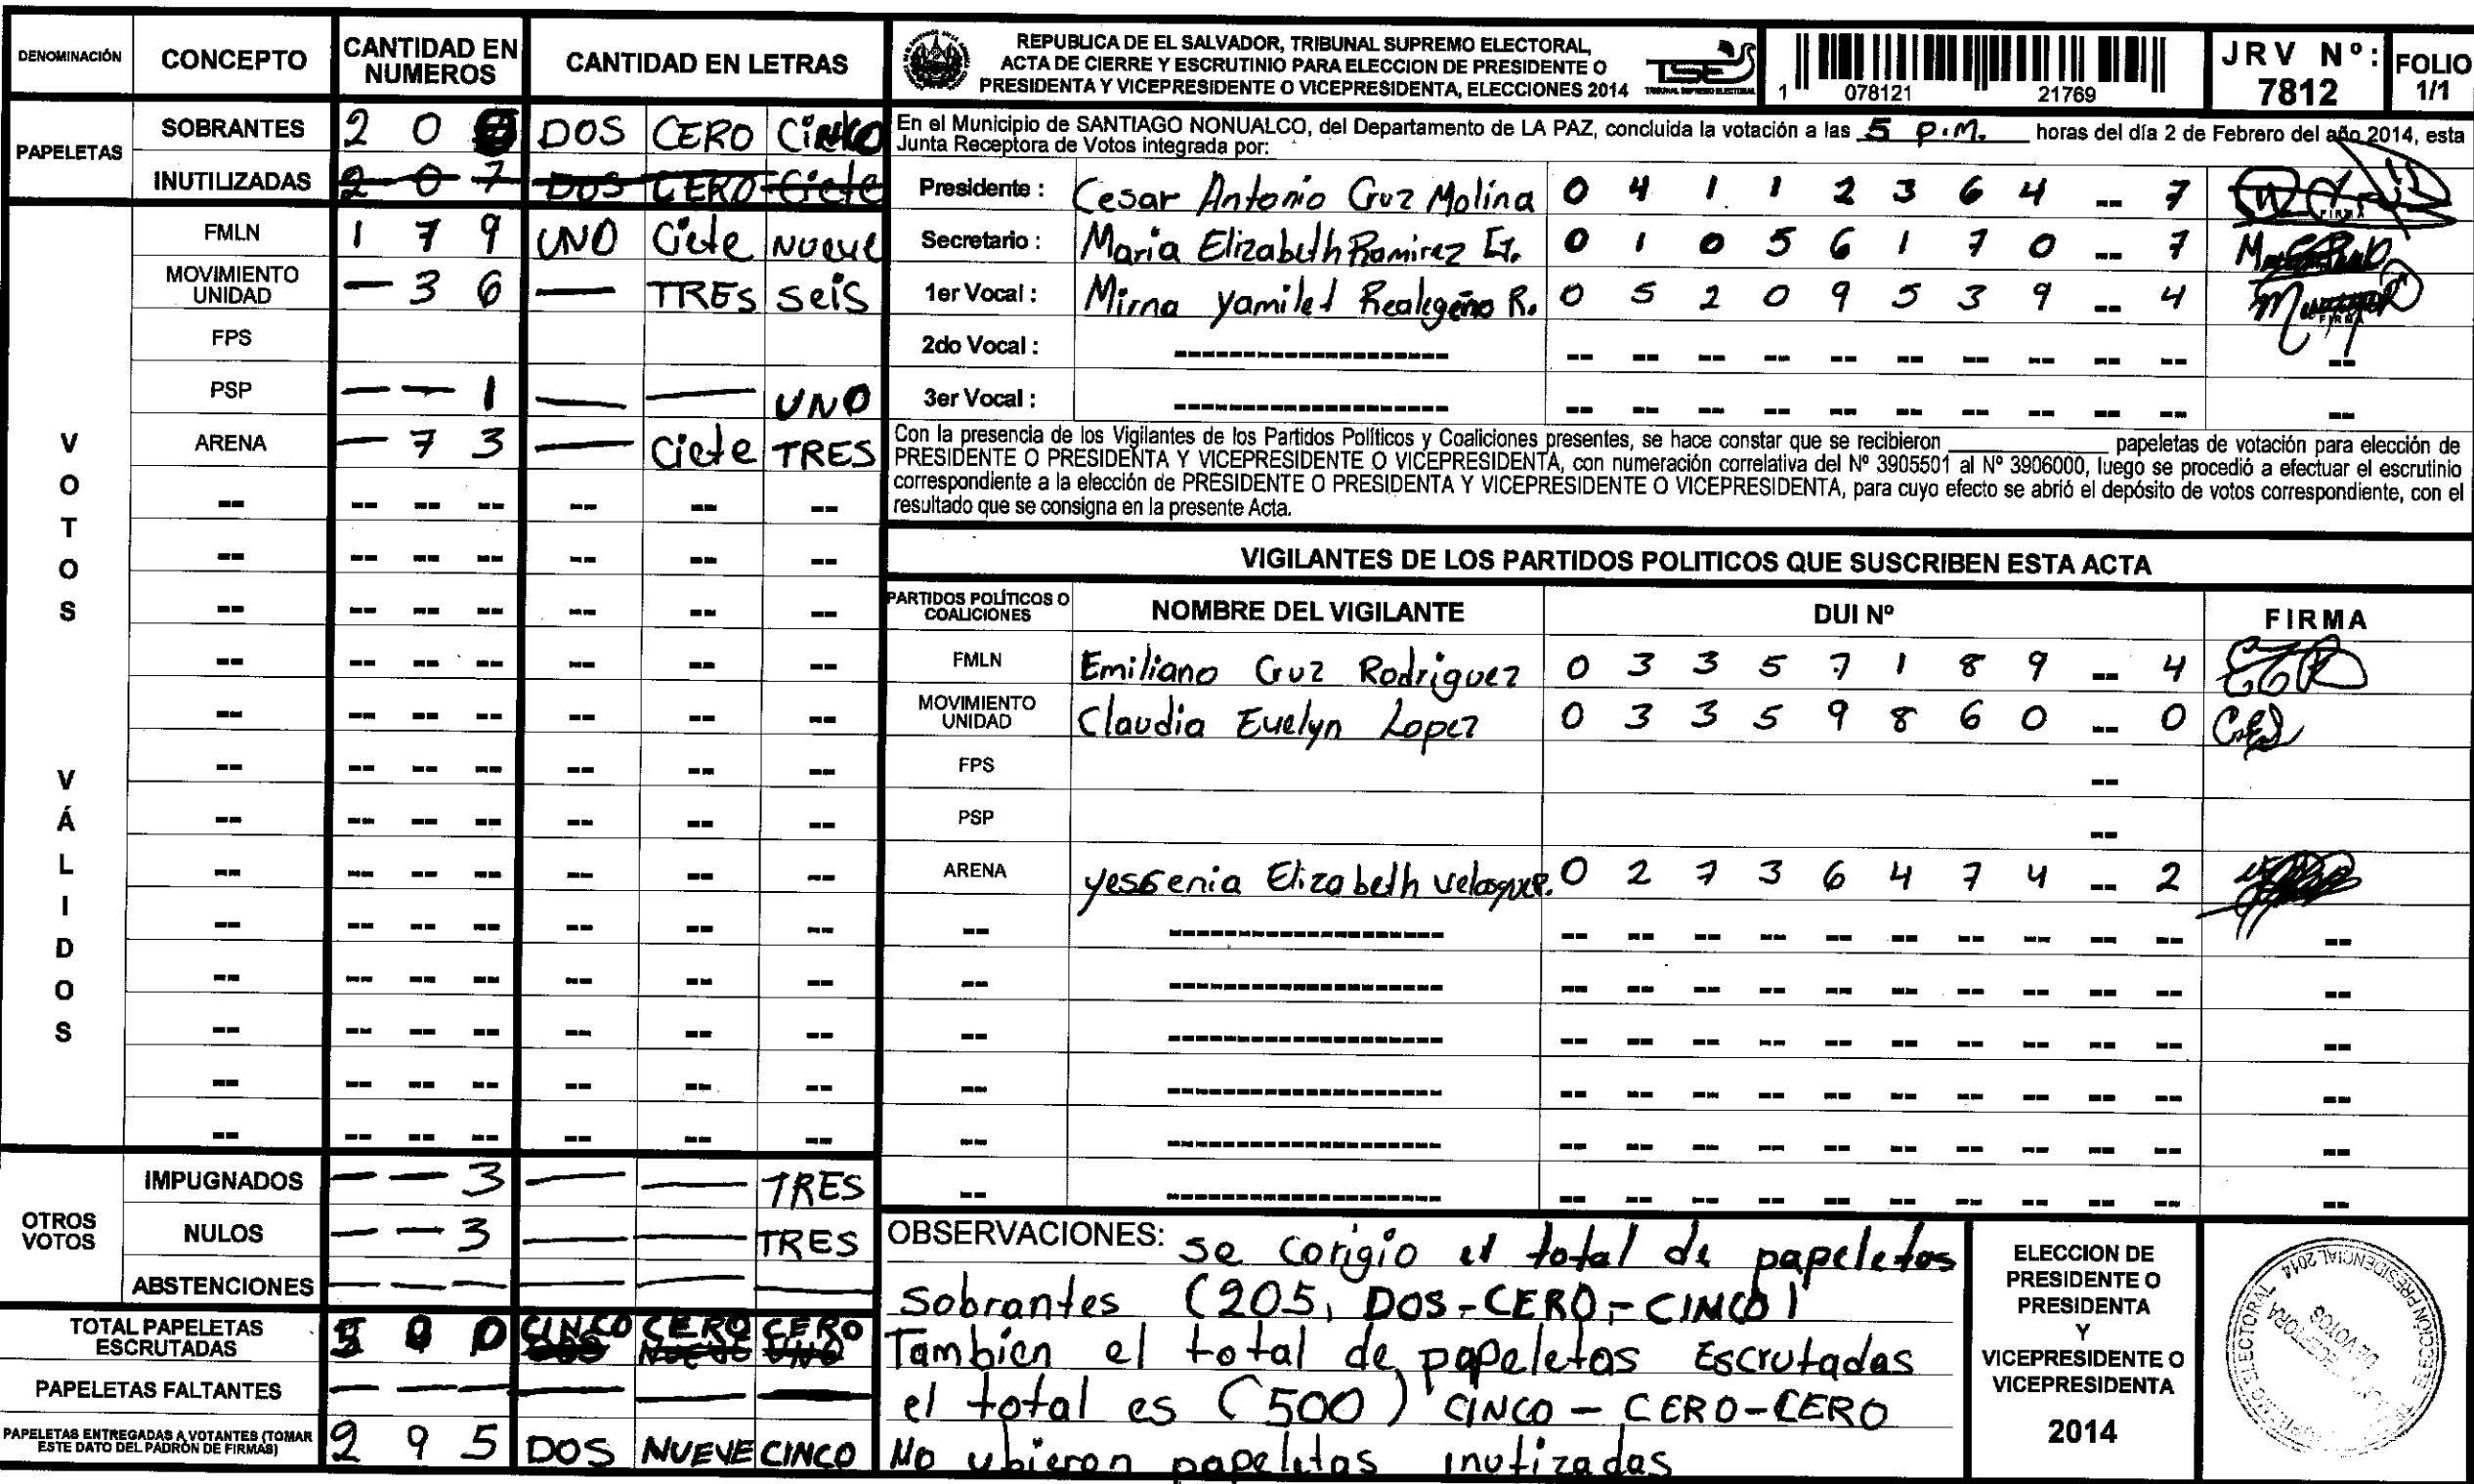 DENOMINACIÓN CONCEPTO CANTIDAD EN NUMEROS CANTIDAD EN LETRAS
PAPELETAS
SOBRANTES 2 0 DOS CERO CINCO
INUTILIZADAS 2 0 7 DOS CERO Ciete
VOTOS VÁLIDOS
FMLN 1 7 9 UNO Ciete NUEVE
MOVIMIENTO UNIDAD — 3 6 — TRES SEIS
FPS
PSP — — 1 — — UNO
ARENA — 7 3 — Ciete TRES
OTROS VOTOS
IMPUGNADOS — — 3 — — TRES
NULOS — — 3 — — TRES
ABSTENCIONES — — — — — —
TOTAL PAPELETAS ESCRUTADAS 5 0 0 CINCO CERO CERO
PAPELETAS FALTANTES — — — — — —
PAPELETAS ENTREGADAS A VOTANTES (TOMAR ESTE DATO DEL PADRÓN DE FIRMAS) 2 9 5 DOS NUEVE CINCO
REPUBLICA DE EL SALVADOR, TRIBUNAL SUPREMO ELECTORAL,
ACTA DE CIERRE Y ESCRUTINIO PARA ELECCION DE PRESIDENTE O
PRESIDENTA Y VICEPRESIDENTE O VICEPRESIDENTA, ELECCIONES 2014
TSE
TRIBUNAL SUPREMO ELECTORAL
1 078121 21769
JRV Nº: 7812
FOLIO 1/1
En el Municipio de SANTIAGO NONUALCO, del Departamento de LA PAZ, concluida la votación a las 5 P.M. horas del día 2 de Febrero del año 2014, esta
Junta Receptora de Votos integrada por:
Presidente : Cesar Antonio Cruz Molina 0 4 1 1 2 3 6 4 -- 7
Secretario : Maria Elizabeth Ramirez G. 0 1 0 5 6 1 7 0 -- 7
1er Vocal : Mirna yamilet Realegeño R. 0 5 2 0 9 5 3 9 -- 4
2do Vocal :
3er Vocal :
Con la presencia de los Vigilantes de los Partidos Políticos y Coaliciones presentes, se hace constar que se recibieron ________ papeletas de votación para elección de
PRESIDENTE O PRESIDENTA Y VICEPRESIDENTE O VICEPRESIDENTA, con numeración correlativa del Nº 3905501 al Nº 3906000, luego se procedió a efectuar el escrutinio
correspondiente a la elección de PRESIDENTE O PRESIDENTA Y VICEPRESIDENTE O VICEPRESIDENTA, para cuyo efecto se abrió el depósito de votos correspondiente, con el
resultado que se consigna en la presente Acta.
VIGILANTES DE LOS PARTIDOS POLITICOS QUE SUSCRIBEN ESTA ACTA
PARTIDOS POLÍTICOS O COALICIONES NOMBRE DEL VIGILANTE DUI Nº FIRMA
FMLN Emiliano Cruz Rodriguez 0 3 3 5 7 1 8 9 -- 4
MOVIMIENTO UNIDAD Claudia Evelyn Lopez 0 3 3 5 9 8 6 0 -- 0
FPS --
PSP --
ARENA yessenia Elizabeth 0 2 7 3 6 4 7 4 -- 2
OBSERVACIONES: se corigio el total de papeletas
Sobrantes (205, DOS-CERO-CINCO)
Tambien el total de papeletas Escrutadas
el total es (500) CINCO - CERO-CERO
No ubieron papeletas inutizadas
ELECCION DE
PRESIDENTE O
PRESIDENTA
Y
VICEPRESIDENTE O
VICEPRESIDENTA
2014